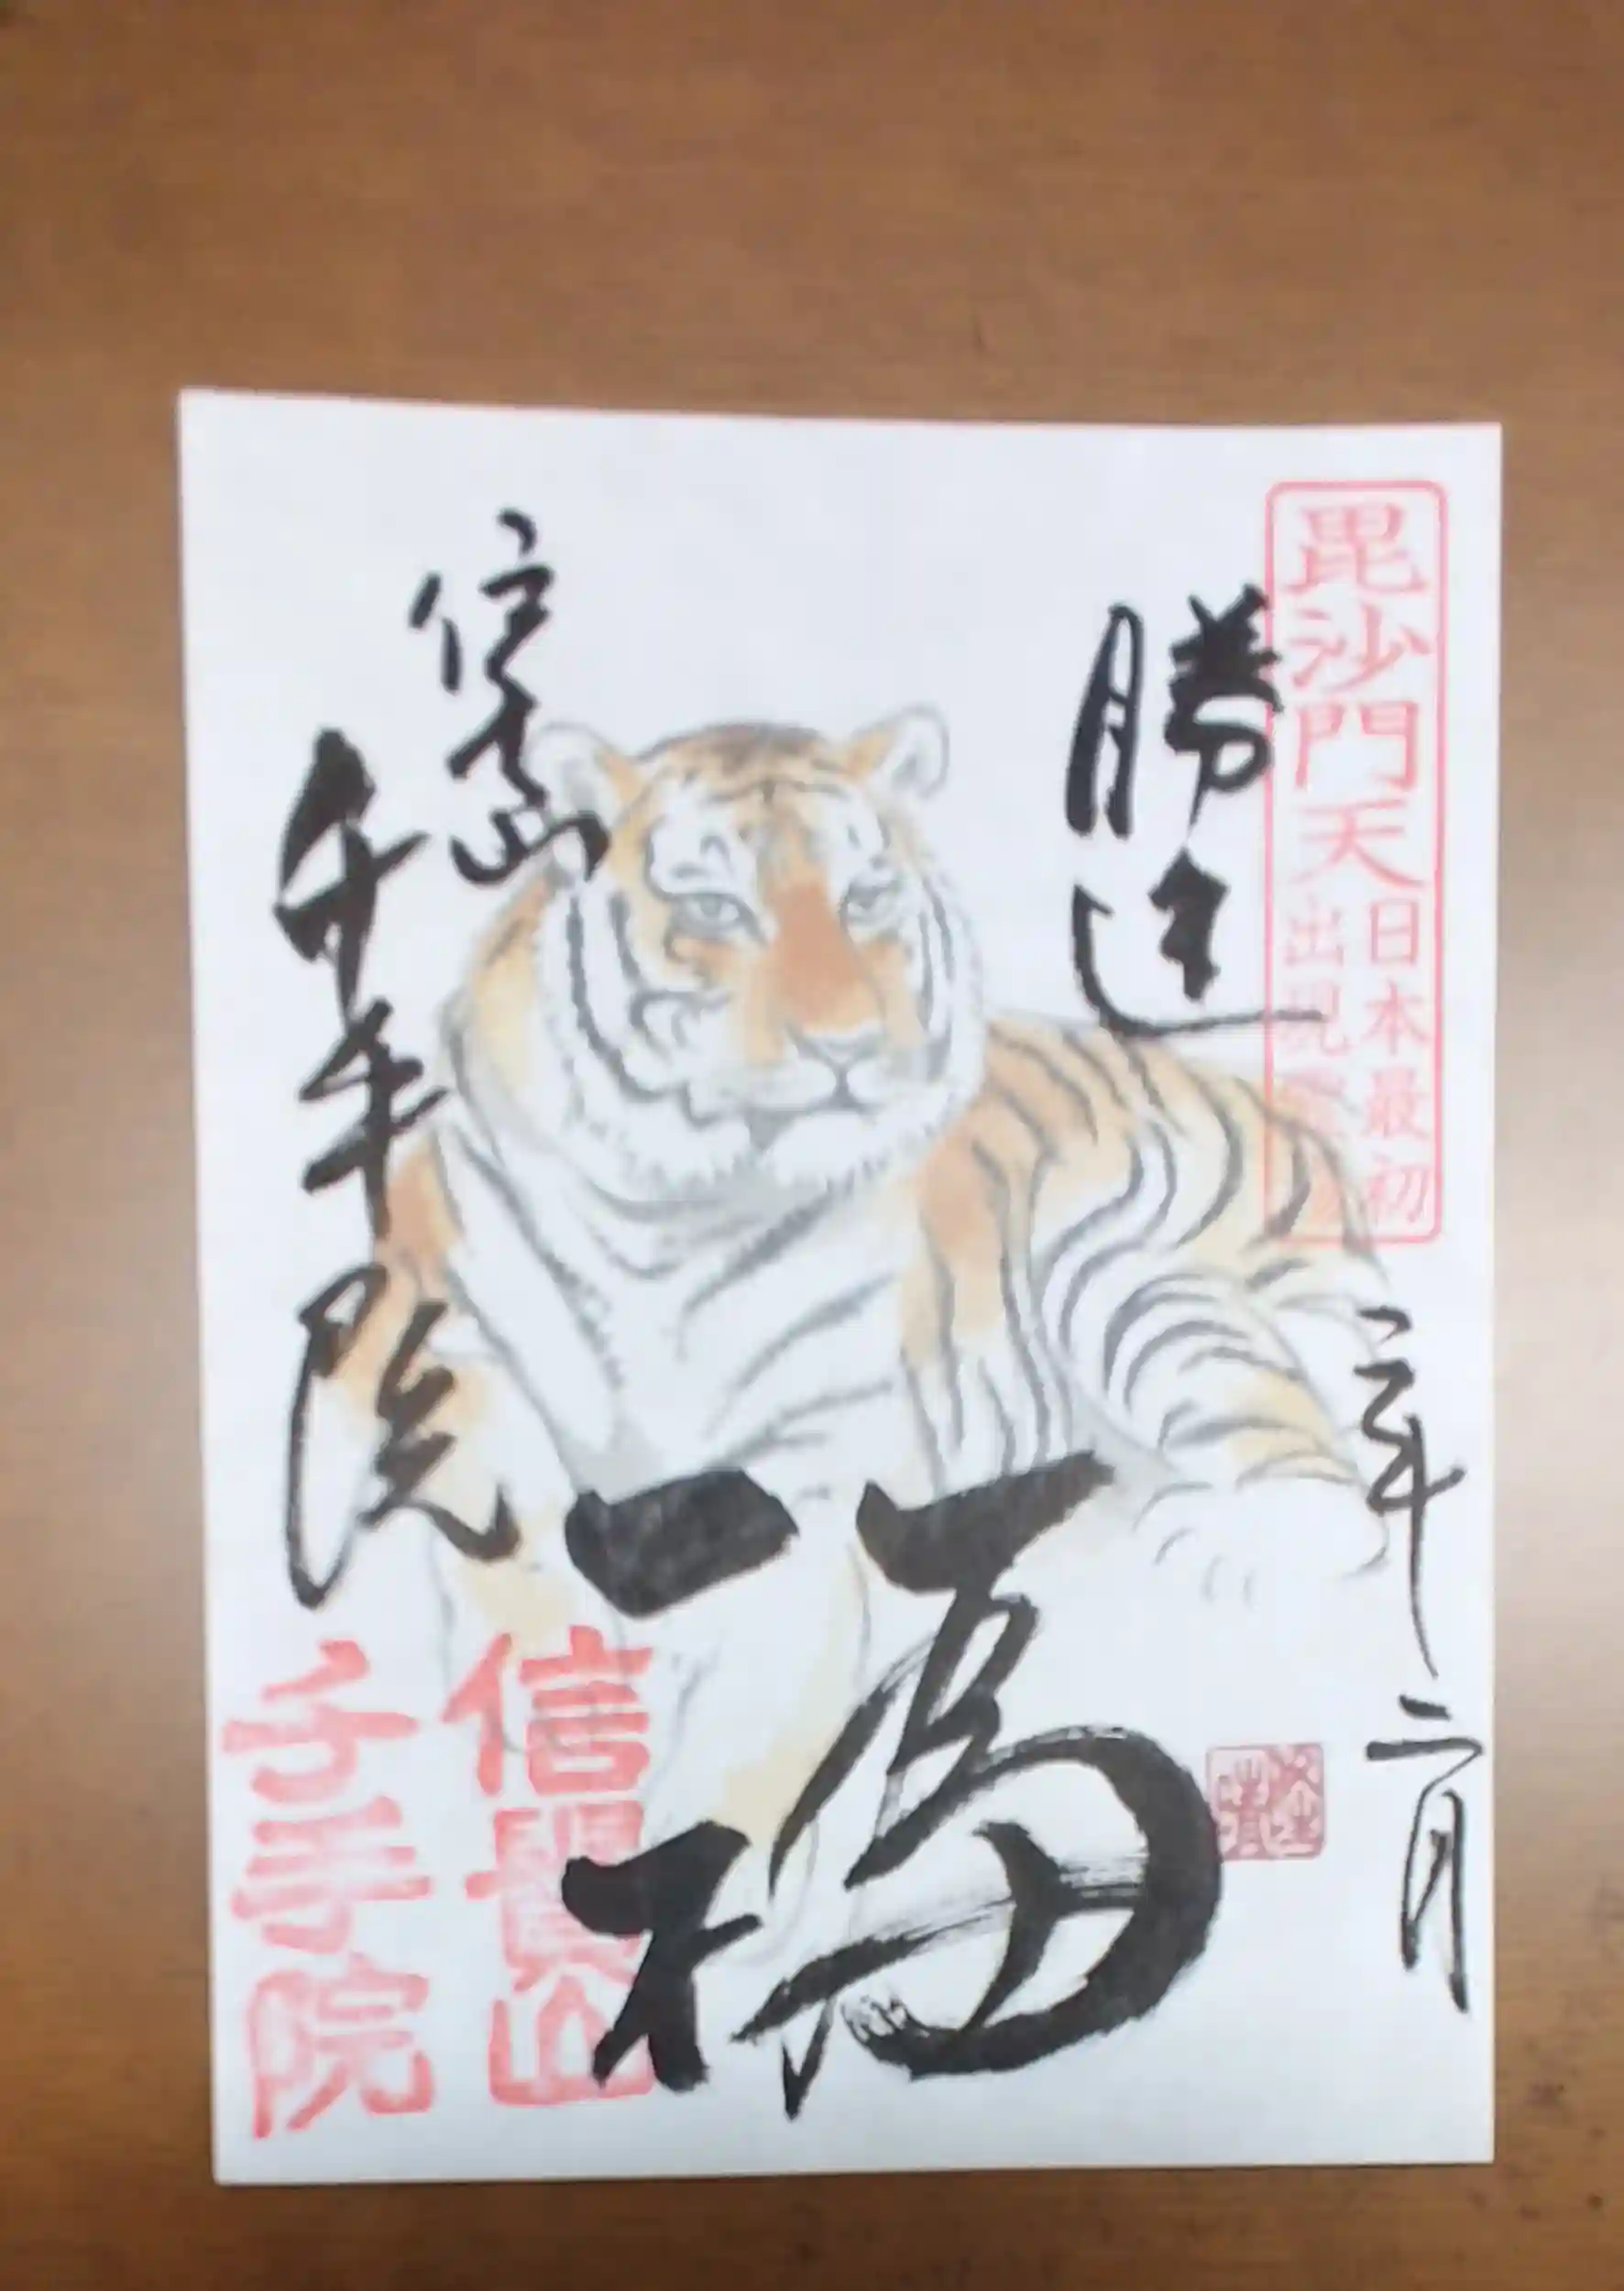 毘沙門天
日本最初
出現
勝運
年二月
福
信貴山
千手院
信貴山
千手院